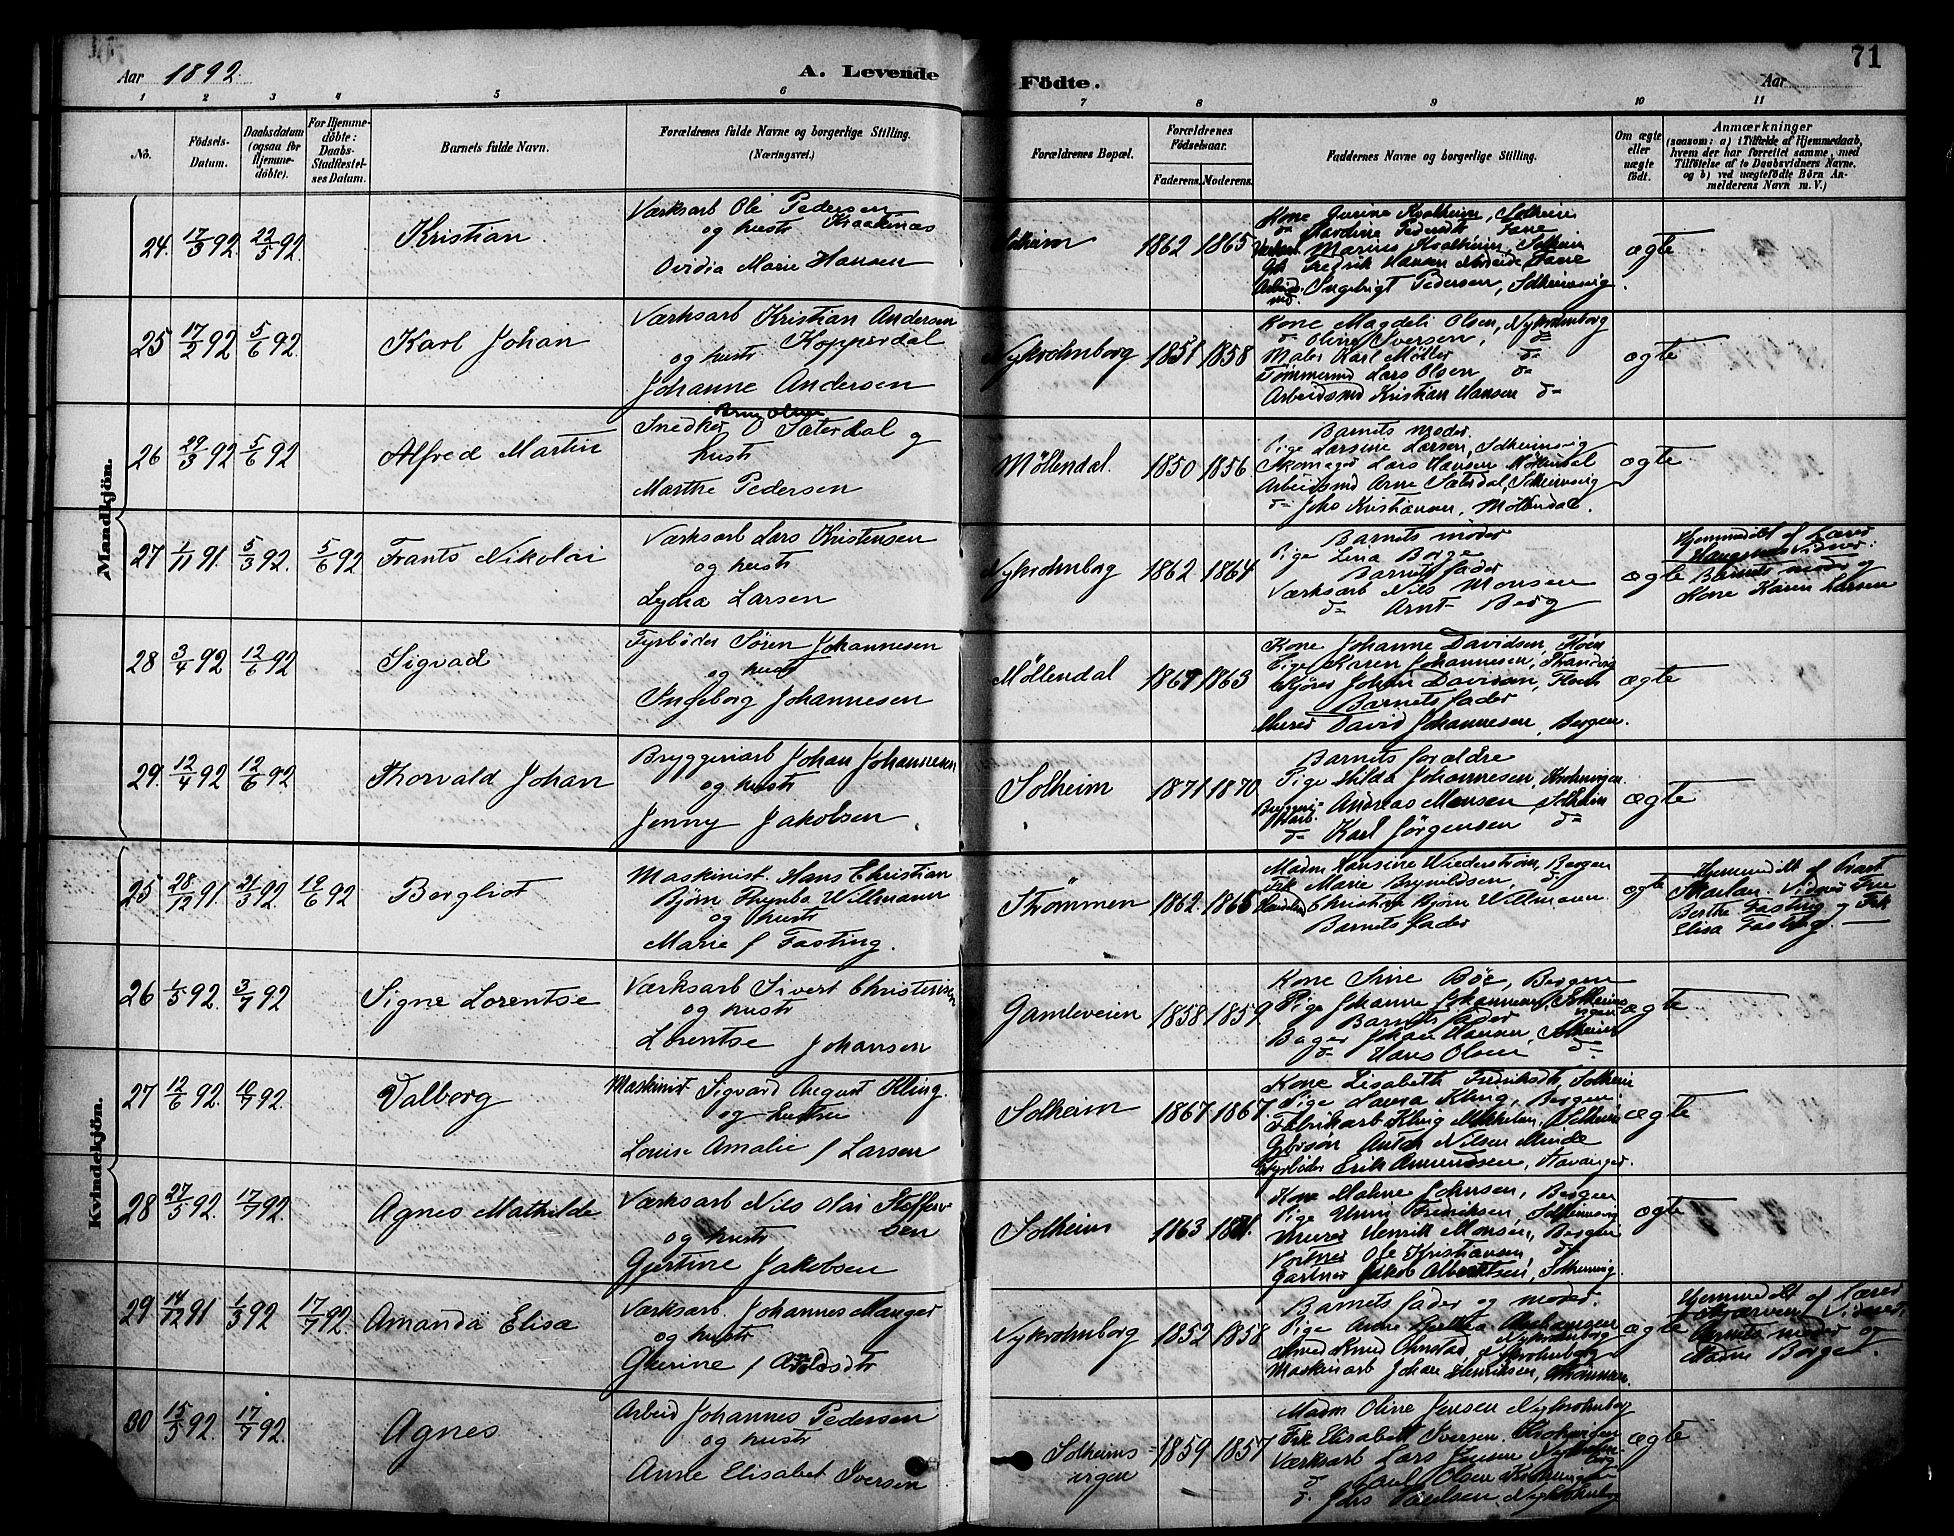 71
Aar 1892.
A. Levende
Födte.
Aar
1 2 3 4 5 6 7 8 9 10 11
No.
Födsels-Datum.
Daabsdatum (ogsaa for Hjemme-döbte).
For Hjemme-döbte: Daabs-Stadfæstel-ses Datum.
Barnets fulde Navn.
Forældrenes fulde Navne og borgerlige Stilling.
(Næringsvei.)
Forældrenes Bopæl.
Forældrenes Födselsaar.
Faderens. Moderens.
Faddernes Navne og borgerlige Stilling.
Om ægte eller uægte født.
Anmærkninger
(saasom: a) i Tilfælde af Hjemmedaab, hvem der har forrettet samme, med Tilföielse af to Daabsvidners Navne, og b) ved uægtefödte Börn An-melderens Navn m. V.)
Mandkjön.
24. 17/3 92. 22/5 92. Kristian
Værksarb Ole Pedersen
og hustr Kraakenes
Ovidia Marie Hansen
Solheim 1862 1865
Kone Kvalheim, Solheim
Marius Kvalheim, Solheim
Fredrik Hansen Fane
Arbeidsmd. Ingebrigt Pedersen, Solheimsvig
ægte
25 17/2 92 5/6 92. Karl Johan
Værksarb Kristian Andersen
og hustr Kopperdal
Johanne Andersen
Nykrohnborg 1851 1858
Kone Magdeli Olsen, Nykrohnborg
d- Oline Iversen, d-
Maler Karl Møller d-
Tømmermd Lars Olsen d-
Arbeidsmd Kristian Hansen d-
ægte
26 29/3 92 5/6 92 Alfred Martin
Snedker Sæterdal og
hustr
Marthe Pedersen
Möllendal. 1850 1856
Barnets moder.
Pige Larsine Larsen, Solheimsvig
Skomager Lars Hansen Möllendal
Arbeidsmd Arne Sæterdal, Solheimsvig
d- Johs Kristiansen, Möllendal.
ægte
27 1/11 91. 5/3 92. 5/6 92 Frants Nikolai
Værksarb Lars Kristensen
og hustr
Lydia Larsen
Nykrohnborg 1862 1864
Barnets moder
Pige Lina Berge
Barnets fader
Værksarb Nils Monsen
d- Arnt Berg
ægte
Hjemmedöbt af Lærer
Barnets moder og
Kone Karen Larsen
28 3/4 92 12/6 92 Sigvad
Fyrbøder Søren Johannesen
og hustr
Ingeborg Johannesen
Möllendal 1863
Kone Johanne Davidsen,
Pige Karen Johannesen,
Kjører Johan Davidsen,
Barnets fader
Murer David Johannesen, Bergen.
ægte
29. 12/4 92 12/6 92 Thorvald Johan
Bryggeriarb Johan Johannesen
og hustr
Jenny Jakobsen
Solheim 1871 1870
Barnets forældre
Pige Hilda Johannesen,
Bryggeriarb. Andreas Monsen Solheim
d- Karl Jørgensen d-
ægte
Kvindekjön.
25 28/12 91. 21/3 92 19/6 92 Bergliot
Maskinist Hans Christian
Bjørn Willmann
og hustr
Marie f Fasting.
Thömmen 1862. 1865
Madm Hansine Wiederstrøm, Bergen
Frk Marie Brynildsen, d-
Christian Bjørn Willmann
Barnets fader
ægte
Hjemmedöbt af
Vidner Frue
Berthe Fasting og Frk
Elisa Fasting.
26 1/5 92. 3/7 92 Signe Lorentse
Værksarb Sivert Christensen
og hustr
Lorentse Johansen
Gamleveien 1858 1859
Kone Sine Böe, Bergen
Pige Johanne Johannesen,
Barnets fader
Bager Johan Hansen, Solheim
d- Hans Olsen d-
ægte
27 12/6 92. 10/7 92. Valborg
Maskinist Sigvard August Kling
og hustru
Louise Amalie f Larsen
Solheim 1867 1867
Kone Lisabeth Fredriksdt, Solheim
Pige Laura Kling, Bergen.
Fabrikarb Kling, Solheim
Anton Nilsen Minde
Fyrbøder Erik Amundsen, Stavanger.
ægte
28 27/5 92. 17/7 92. Agnes Mathilde
Værksarb Nils Olai Stoffersen
og hustr
Gjertine Jakobsen
Solheim 1863
Kone Malene Johnsen, Bergen
Pige Fredriksen, Solheimsvig
Murer Henrik Monsen, Bergen
Ole Kristiansen, d-
Gartner Jakob Albertsen, Solheimsvig.
ægte
29 14/12 91 1/3 92 17/7 92. Amanda Elisa
Værksarb. Johannes Manger
og hustr
Gherine f
Nykrohnborg 1852 1858
Barnets fader og moder.
Pige Anne
Smed Knud Nykrohnborg
Maskinarb Johan Henriksen,
ægte
Hjemmedöbt af Lærer
Vidner,
Barnets moder og
Madm Borge.
30 15/5 92. 17/7 92. Agnes
Arbeid Johannes Pedersen
og hustr
Anne Elisabet Iversen
Solheimsvigen 1859 1857
Madm Oline Jensen Nykrohnborg
Frk Elisabeth Iversen,
Værksarb Lars Jensen
d- Olsen
d- Johs Nykrohnborg
ægte